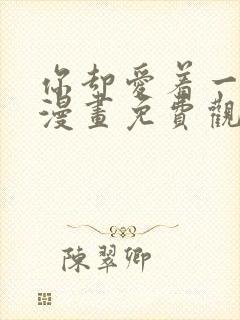 你却愛着一
漫畫免費觀
陳翠卿